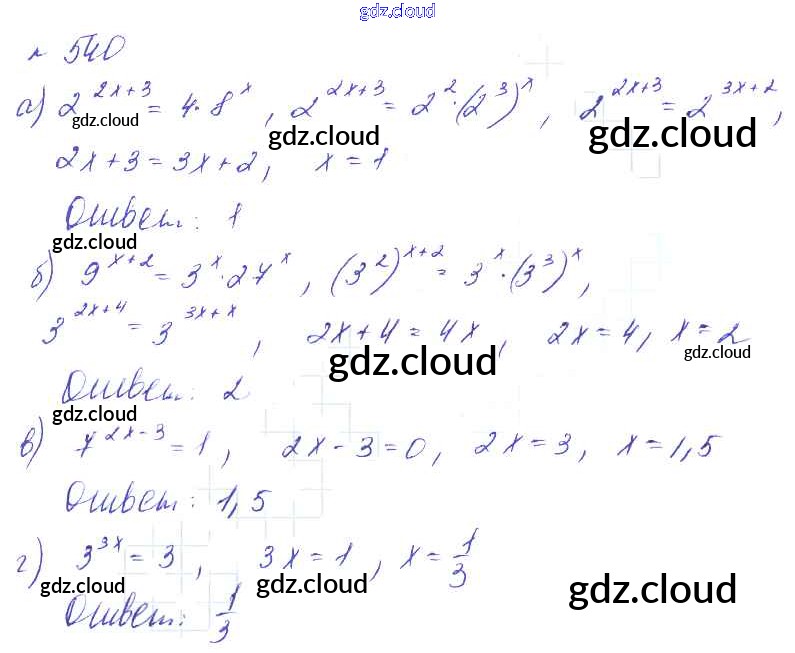 gdz.cloud
№ 540
а) 2^{2x+3} = 4·8^x, 2^{2x+3} = 2^2·(2^3)^x, 2^{2x+3} = 2^{3x+2},
gdz.cloud gdz.cloud gdz.cloud
2x+3=3x+2, x=1
Ответ: 1
gdz.cloud
б) 9^{x+2} = 3^x·27^x, (3^2)^{x+2} = 3^x·(3^3)^x,
3^{2x+4} = 3^{3x+x}, 2x+4=4x, 2x=4, x=2
gdz.cloud gdz.cloud
Ответ: 2
gdz.cloud
в) 7^{2x-3} = 1, 2x-3=0, 2x=3, x=1,5
Ответ: 1,5
г) 3^{3x} = 3, 3x=1, x=1/3
gdz.cloud gdz.cloud gdz.cloud
Ответ: 1/3